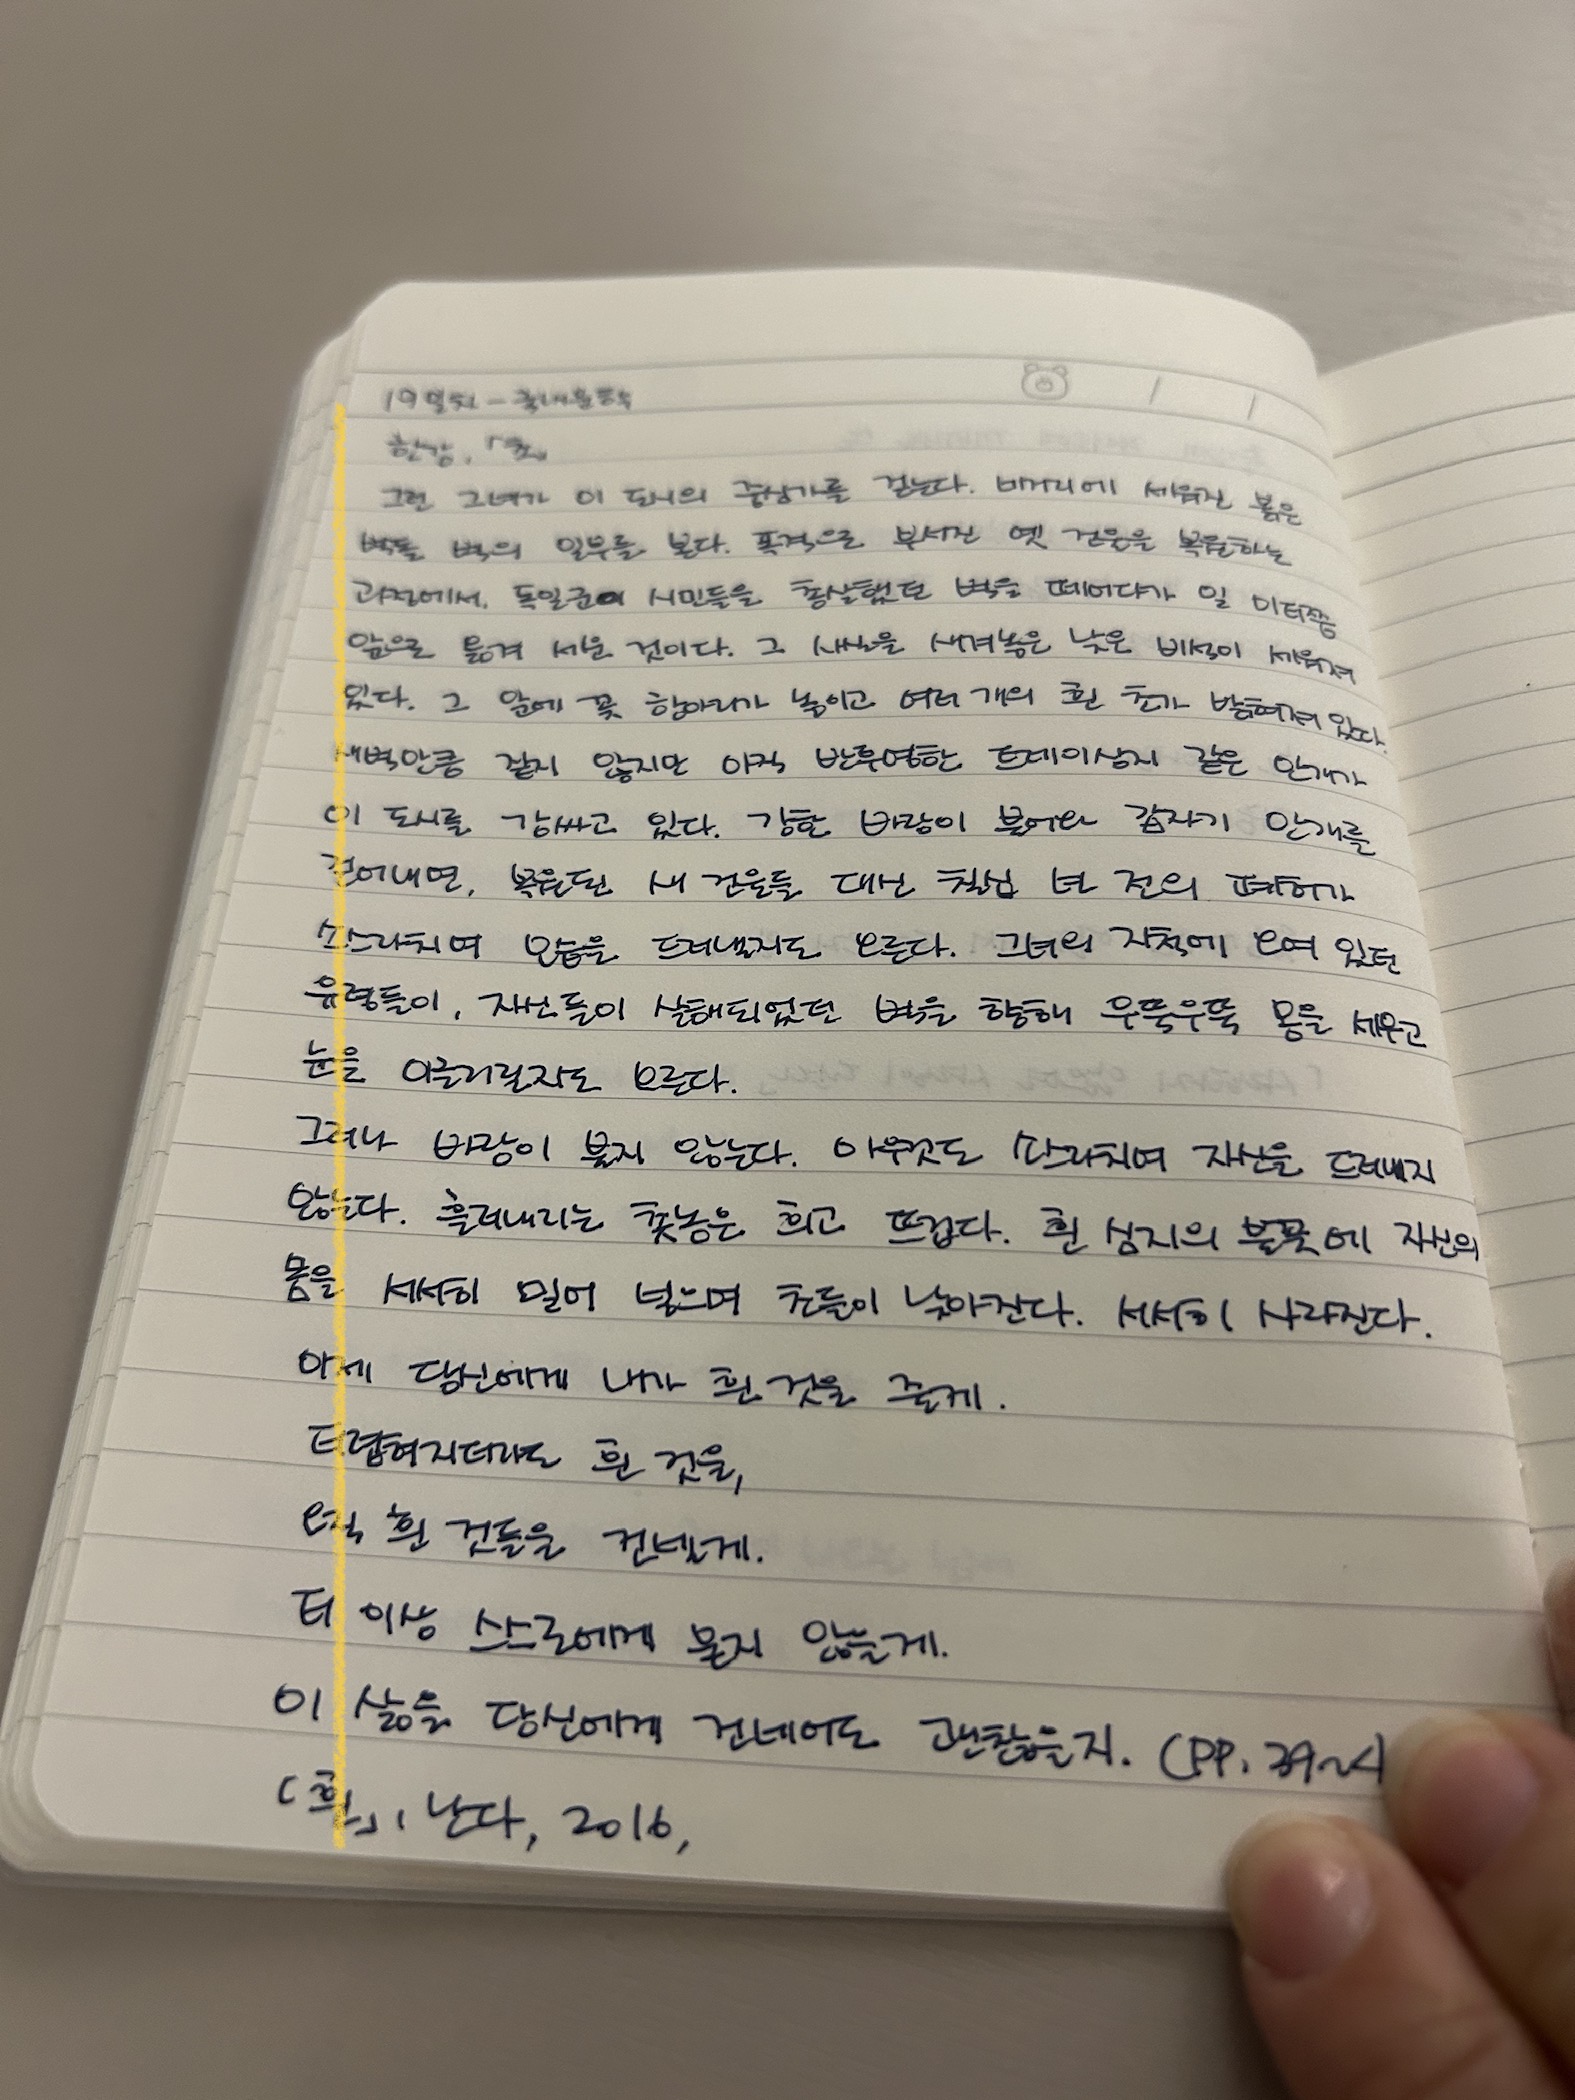 19일차 - 국내문학
한강, 「초」
그런 그녀가 이 도시의 중심가를 걷는다. 네거리에 세워진 붉은
벽돌 벽의 일부를 본다. 폭격으로 부서진 옛 건물을 복원하는
과정에서, 독일군이 시민들을 총살했던 벽을 떼어다가 일 미터쯤
앞으로 옮겨 세운 것이다. 그 사실을 새겨놓은 낮은 비석이 세워져
있다. 그 앞에 꽃 항아리가 놓이고 여러 개의 흰 초가 밝혀져 있다.
새벽만큼 짙지 않지만 아직 반투명한 트레이싱지 같은 안개가
이 도시를 감싸고 있다. 강한 바람이 불어와 갑자기 안개를
걷어내면, 복원된 새 건물들 대신 칠십 년 전의 폐허가
소스라치며 모습을 드러낼지도 모른다. 그녀의 지척에 모여 있던
유령들이, 자신들이 살해되었던 벽을 향해 우뚝우뚝 몸을 세우고
눈을 이글거릴지도 모른다.
그러나 바람이 불지 않는다. 아무것도 소스라치며 자신을 드러내지
않는다. 흘러내리는 촛농은 희고 뜨겁다. 흰 심지의 불꽃에 자신의
몸을 서서히 밀어 넣으며 초들이 낮아진다. 서서히 사라진다.
이제 당신에게 내가 흰 것을 줄게.
더럽혀지더라도 흰 것을,
오직 흰 것들을 건넬게.
더 이상 스스로에게 묻지 않을게.
이 삶을 당신에게 건네어도 괜찮을지. (PP. 39~4
「흰」, 난다, 2016,